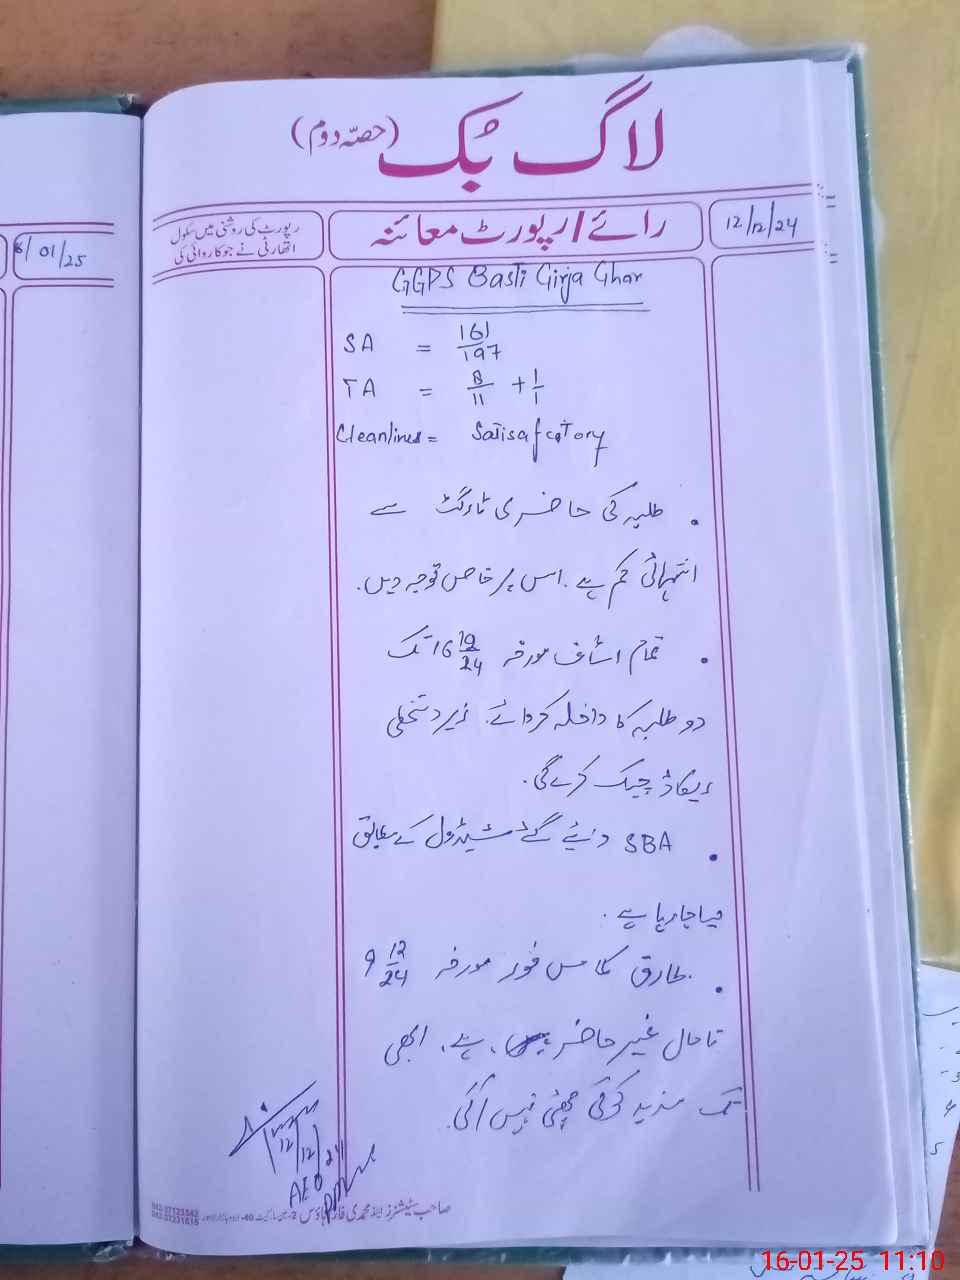 لاگ بُک (حصّہ دوم)
12/12/24
رائے/رپورٹ معائنہ
رپورٹ کی روشنی میں سکول
اتھارٹی نے جو کاروائی کی
/01/25
GGPS Basti Girja Ghar
SA = 161/197
TA = 8/11 + 1/1
Cleanlines = Satisafcatory
طلبہ کی حاضری ٹارگٹ سے
انتہائی کم ہے۔ اس پر خاص توجہ دیں۔
تمام اسٹاف مورخہ 16 12/24 تک
دو طلبہ کا داخلہ کروائے۔ زیر دستخطی
ریکارڈ چیک کرے گی۔
SBA دئیے گئے شیڈول کے مطابق
لیا جا رہا ہے۔
طارق مورخہ 9 12/24
تاحال غیر حاضر ہے۔ ابھی
تک مزید کوئی چھٹی نہیں آئی۔
12/12/24
AEO
صاحب سٹیشنرز اینڈ محمدی فارم ہاؤس
042-37123542
042-37231616
16-01-25 11:10